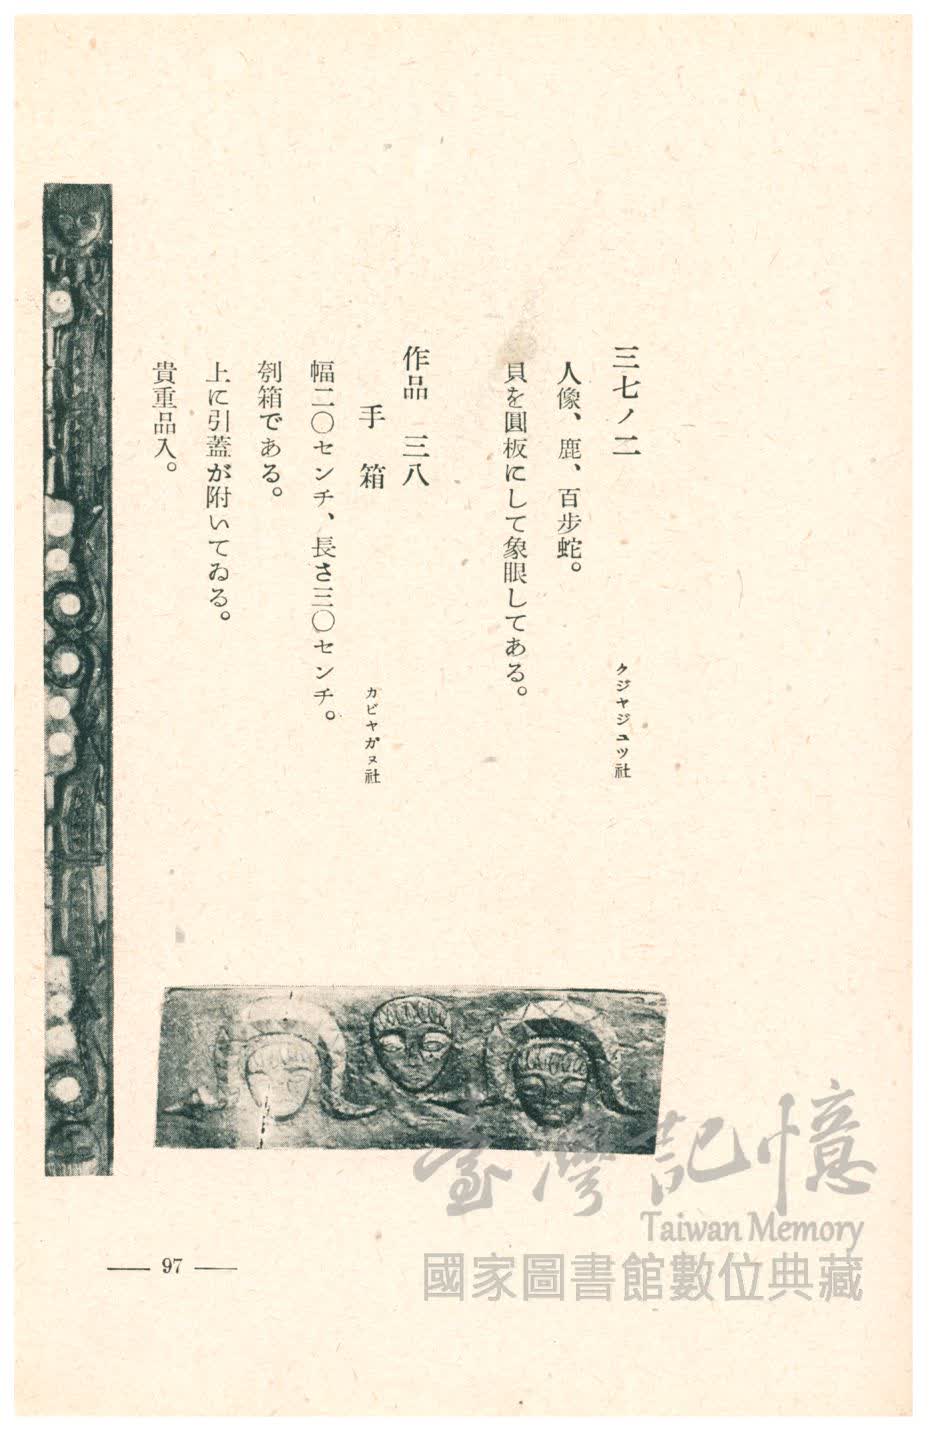 三七ノ二　クジャジュツ社
人像、鹿、百步蛇。
貝を圓板にして象眼してある。
作品　三八
手箱　カビヤガヌ社
幅二〇センチ、長さ三〇センチ。
刳箱である。
上に引蓋が附いてゐる。
貴重品入。
— 97 —
臺灣記憶
Taiwan Memory
國家圖書館數位典藏